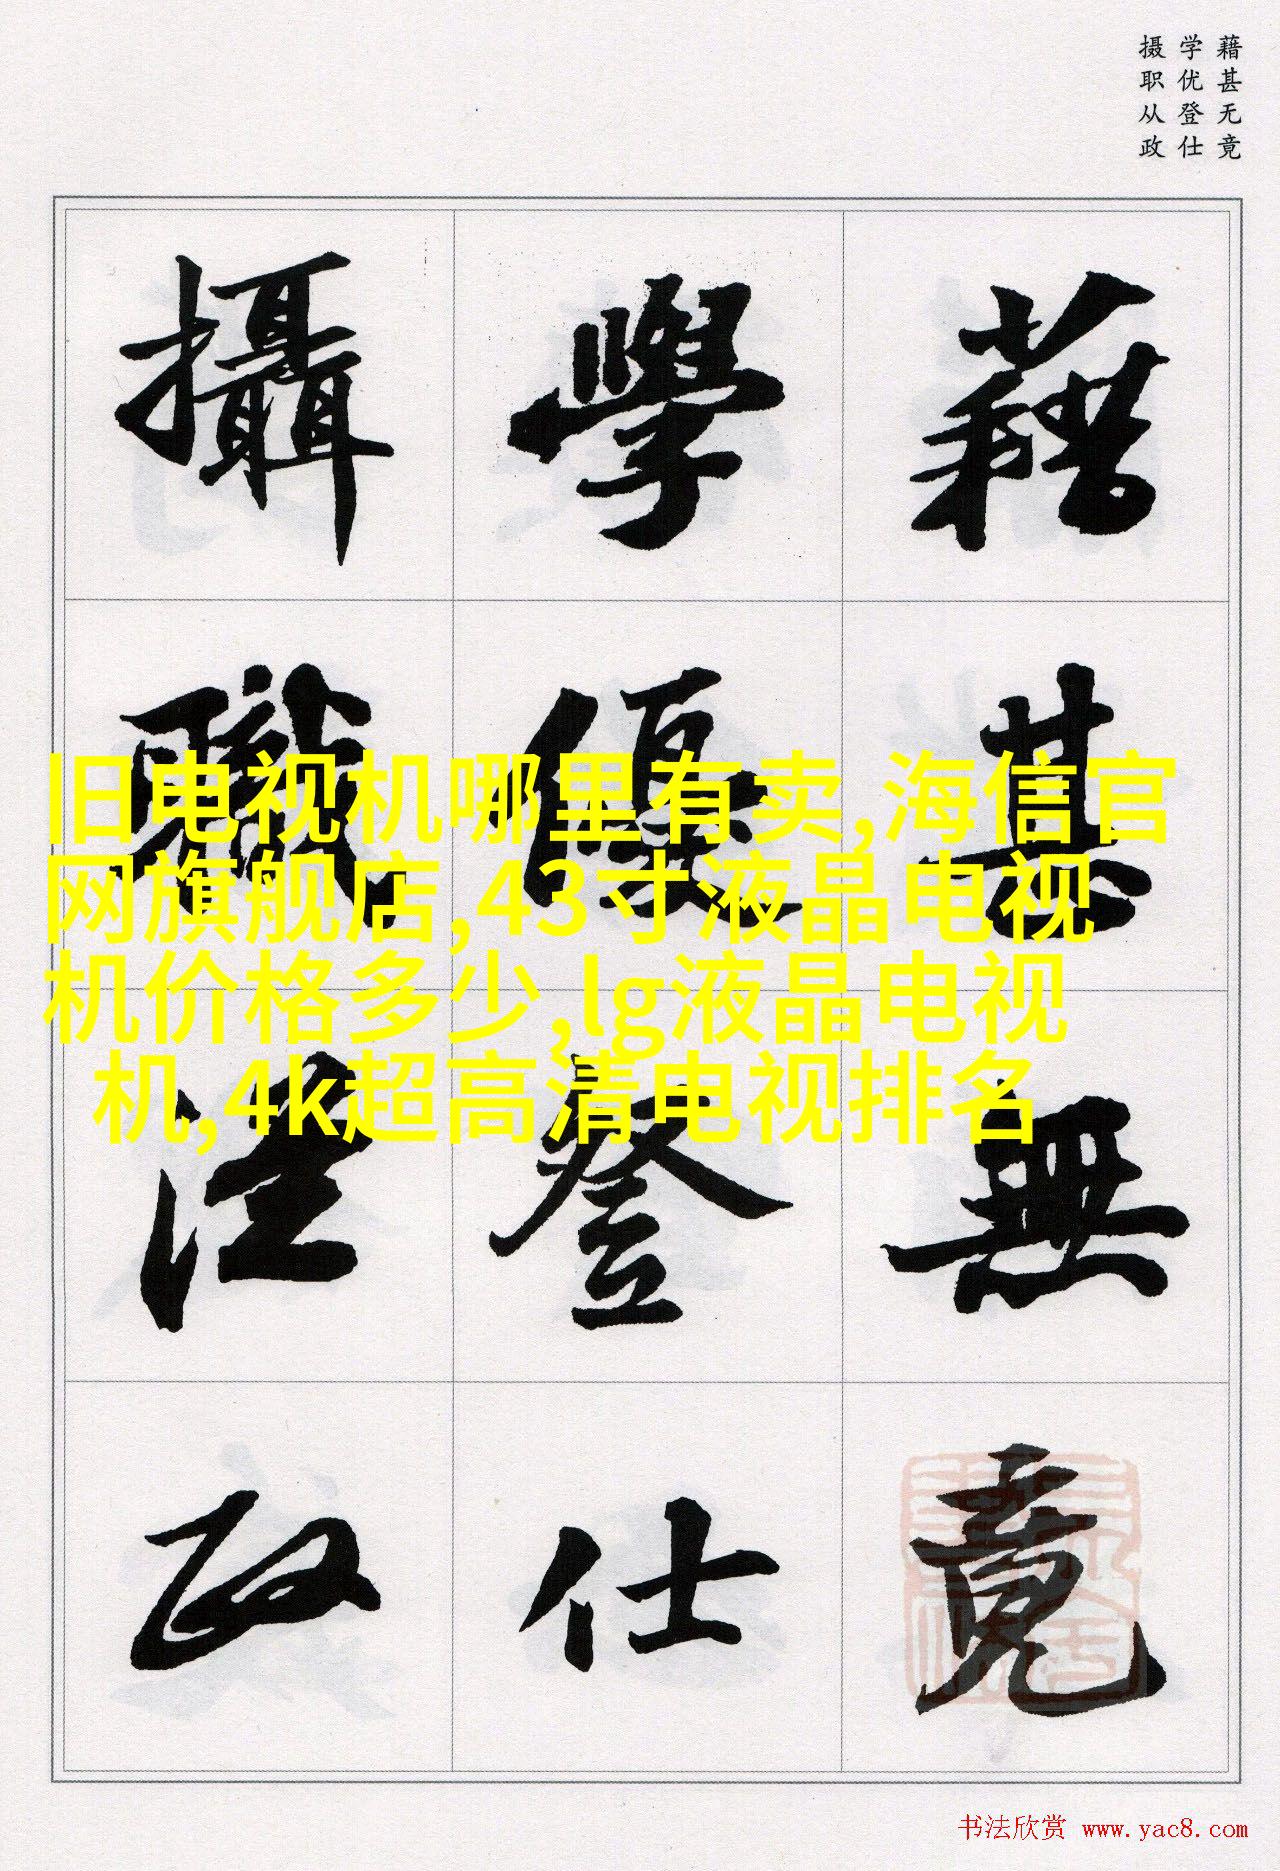 藉甚无竟
学优登仕
摄职从政
藉甚無竟
學優登仕
攝職從政
旧电视机哪里有卖,海信官
网旗舰店,43寸液晶电视
机价格多少,lg液晶电视
机,4k超高清电视排名
书法欣赏 www.yac8.com